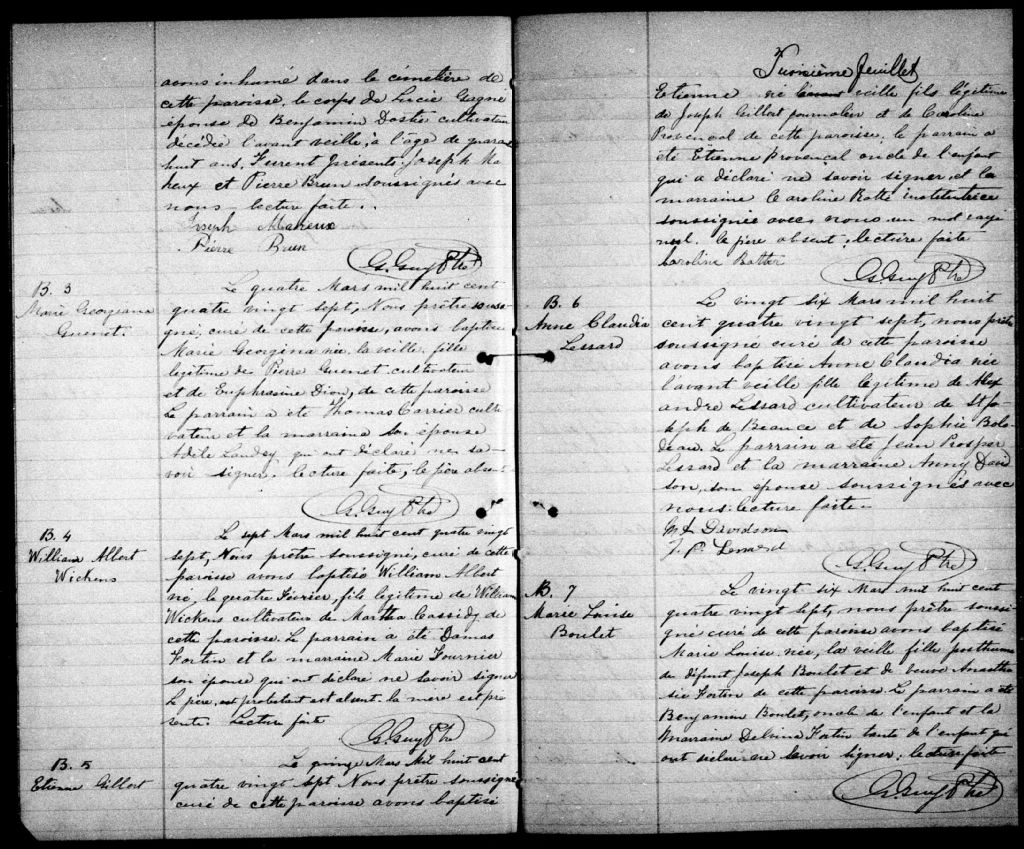 avons inhumé dans le cimetière de
cette paroisse, le corps de Lucie Gagné
épouse de Benjamin Dostie cultivateur
décédée l'avant veille, à l'âge de quarante
huit ans. Furent présents Joseph Ma
heux et Pierre Brun soussignés avec
nous lecture faite.
Joseph Maheux
Pierre Brun
G. Guy Ptre
B. 3
Marie Georgeana
Guenet.
Le quatre Mars mil huit cent
quatre vingt sept, Nous prêtre soussi
gné, curé de cette paroisse, avons baptisée
Marie Georgina née, la veille, fille
legitime de Pierre Guenet cultivateur
et de Euphrasine Dion, de cette paroisse
Le parrain a été Thomas Carrier culti
vateur et la marraine son épouse
Adèle Landry qui ont déclaré ne sa-
voir signer. lecture faite, le père absent
G. Guy Ptre
B. 4
William Albert
Wickens
Le sept Mars mil huit cent quatre vingt
sept, Nous prêtre soussigné, curé de cette
paroisse avons baptisé William Albert
né, le quatre Février, fils legitime de William
Wickens cultivateur de Martha Cassidy de
cette paroisse. Le parrain a été Damas
Fortin et la marraine Marie Fournier
son épouse qui ont déclaré ne savoir signer
Le père, est protestant est absent. la mère est pré
sente. Lecture faite
G. Guy Ptre
B. 5
Etienne Gilbert
Le quinze Mars Mil huit cent
quatre vingt sept Nous prêtre soussigné
curé de cette paroisse avons baptisé
Troisième feuillet
Etienne né veille fils légitime
de Joseph Gilbert journalier et de Caroline
Provençal de cette paroisse, le parrain a
été Etienne Provençal oncle de l'enfant
qui a déclaré ne savoir signer, et la
marraine Caroline Ratté institutrice
soussignée avec nous un mot rayé
nul. le père absent, lecture faite
Caroline Ratter
G. Guy Ptre
B. 6
Anne Claudia
Lessard
Le vingt six Mars mil huit
cent quatre vingt sept, nous prêtre
soussigné curé de cette paroisse
avons baptisée Anne Claudia née
l'avant veille fille légitime de Alex
andre Lessard cultivateur de St Jo-
seph de Beauce et de Sophie Bolo
deau. Le parrain a été Jean Prosper
Lessard et la marraine Anny David
son, son épouse soussignés avec
nous. lecture faite.
Davidson
J. P. Lessard
G. Guy Ptre
B. 7
Marie Louise
Boulet
Le vingt six Mars mil huit cent
quatre vingt sept, nous prêtre soussi
gné curé de cette paroisse avons baptisé
Marie Louise née, la veille fille posthume
de défunt Joseph Boulet et de veuve Anastha
sie Fortin de cette paroisse. Le parrain a été
Benjamin Boulet, oncle de l'enfant et la
Marraine Delvina Fortin tante de l'enfant qui
ont déclaré ne savoir signer, lecture faite
G. Guy Ptre